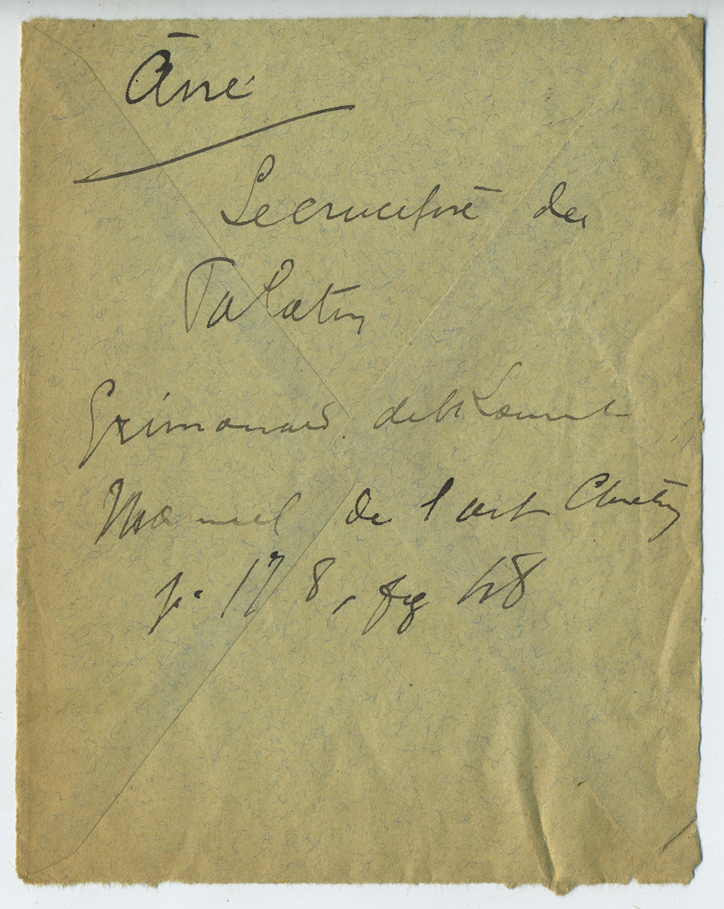 Âne
Le crucifix du
Palatin
Grimouard de St Laurent
Manuel de l'art Chrétien
p. 178, fig 48